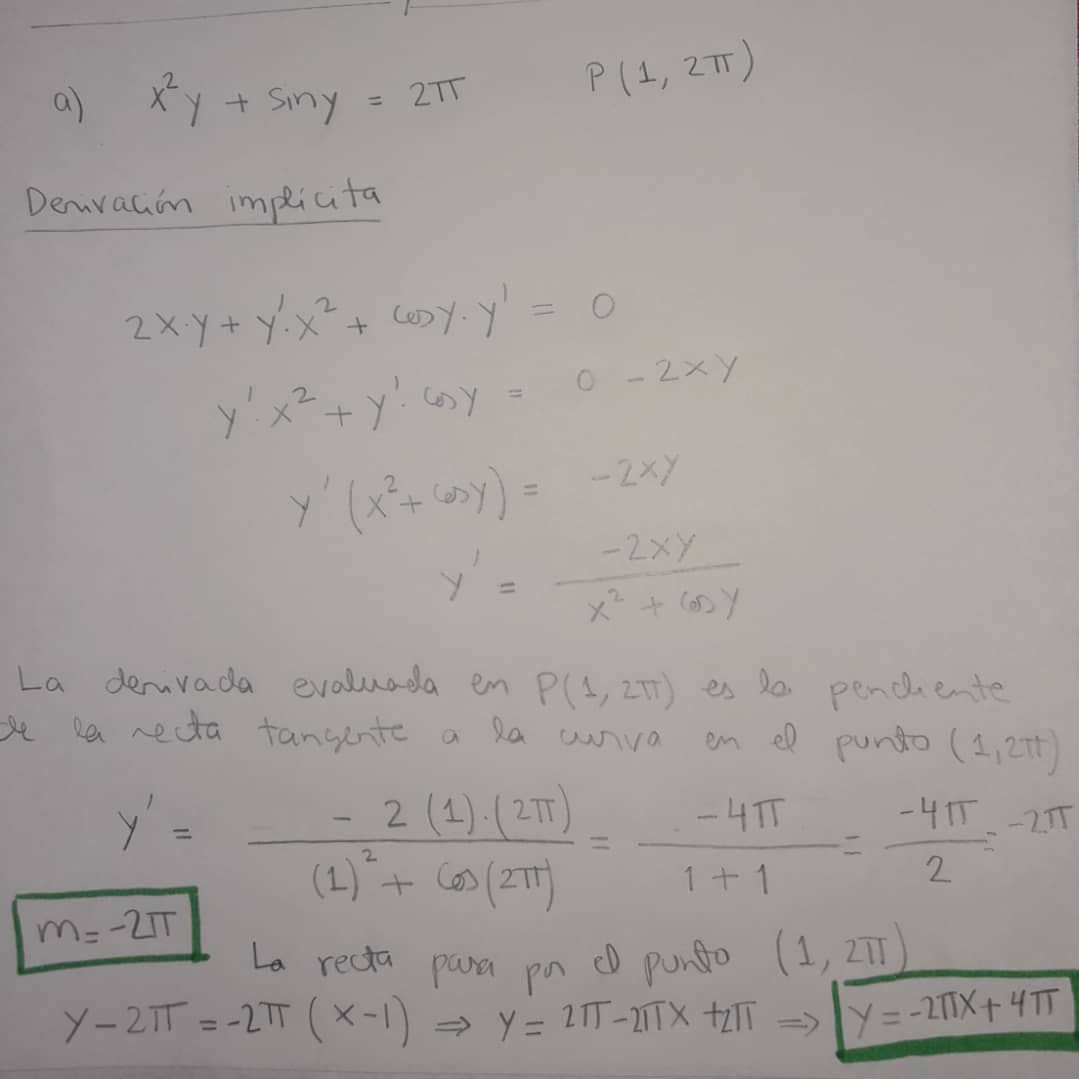 a) x²y + siny = 2π P(1, 2π)
Derivación implícita
2x·y + y'·x² + cosy·y' = 0
y'·x² + y'·cosy = 0 - 2xy
y'(x² + cosy) = -2xy
y' = -2xy / x² + cosy
La derivada evaluada en P(1, 2π) es la pendiente
de la recta tangente a la curva en el punto (1, 2π)
y' = -2(1)·(2π) / (1)² + cos(2π) = -4π / 1+1 = -4π / 2 = -2π
m = -2π
La recta pasa por el punto (1, 2π)
y-2π = -2π(x-1) ⇒ y = 2π-2πx+2π ⇒ y = -2πx+4π